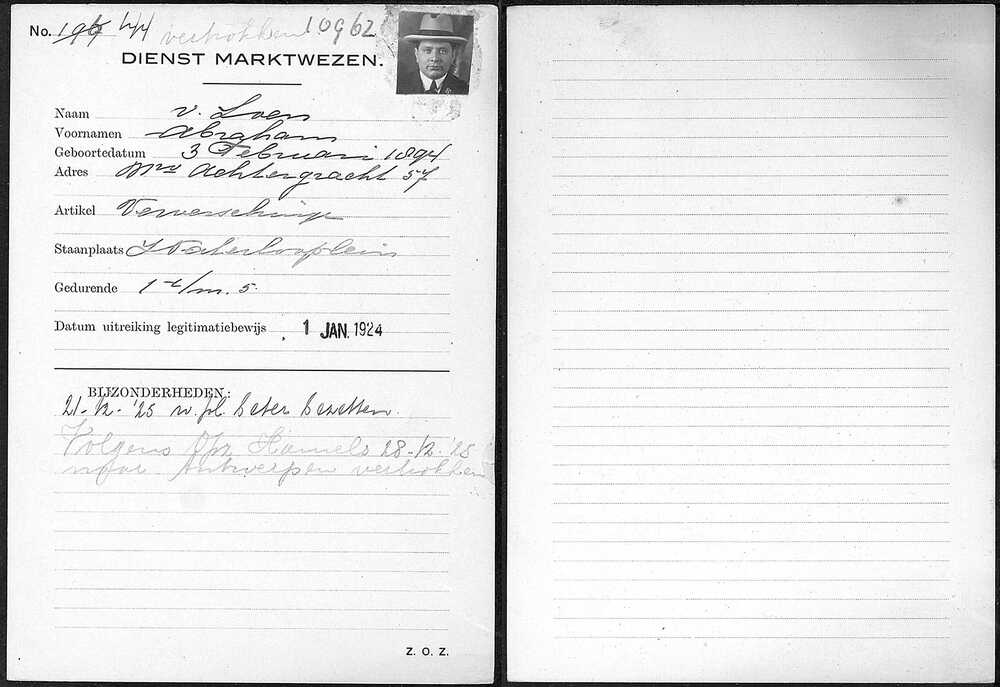 No. 196 44 vertrokken 10962
DIENST MARKTWEZEN.
Naam v. Loen
Voornamen Abraham
Geboortedatum 3 Februari 1894
Adres Achtergracht 57
Artikel Ververschingen
Staanplaats Waterlooplein
Gedurende 1 t/m. 5.
Datum uitreiking legitimatiebewijs 1 JAN. 1924
BIJZONDERHEDEN:
21-12-'25 w. pl. beter bezetten.
Volgens Opz. Hamels 28-12-'25
naar Antwerpen vertrokken
Z. O. Z.